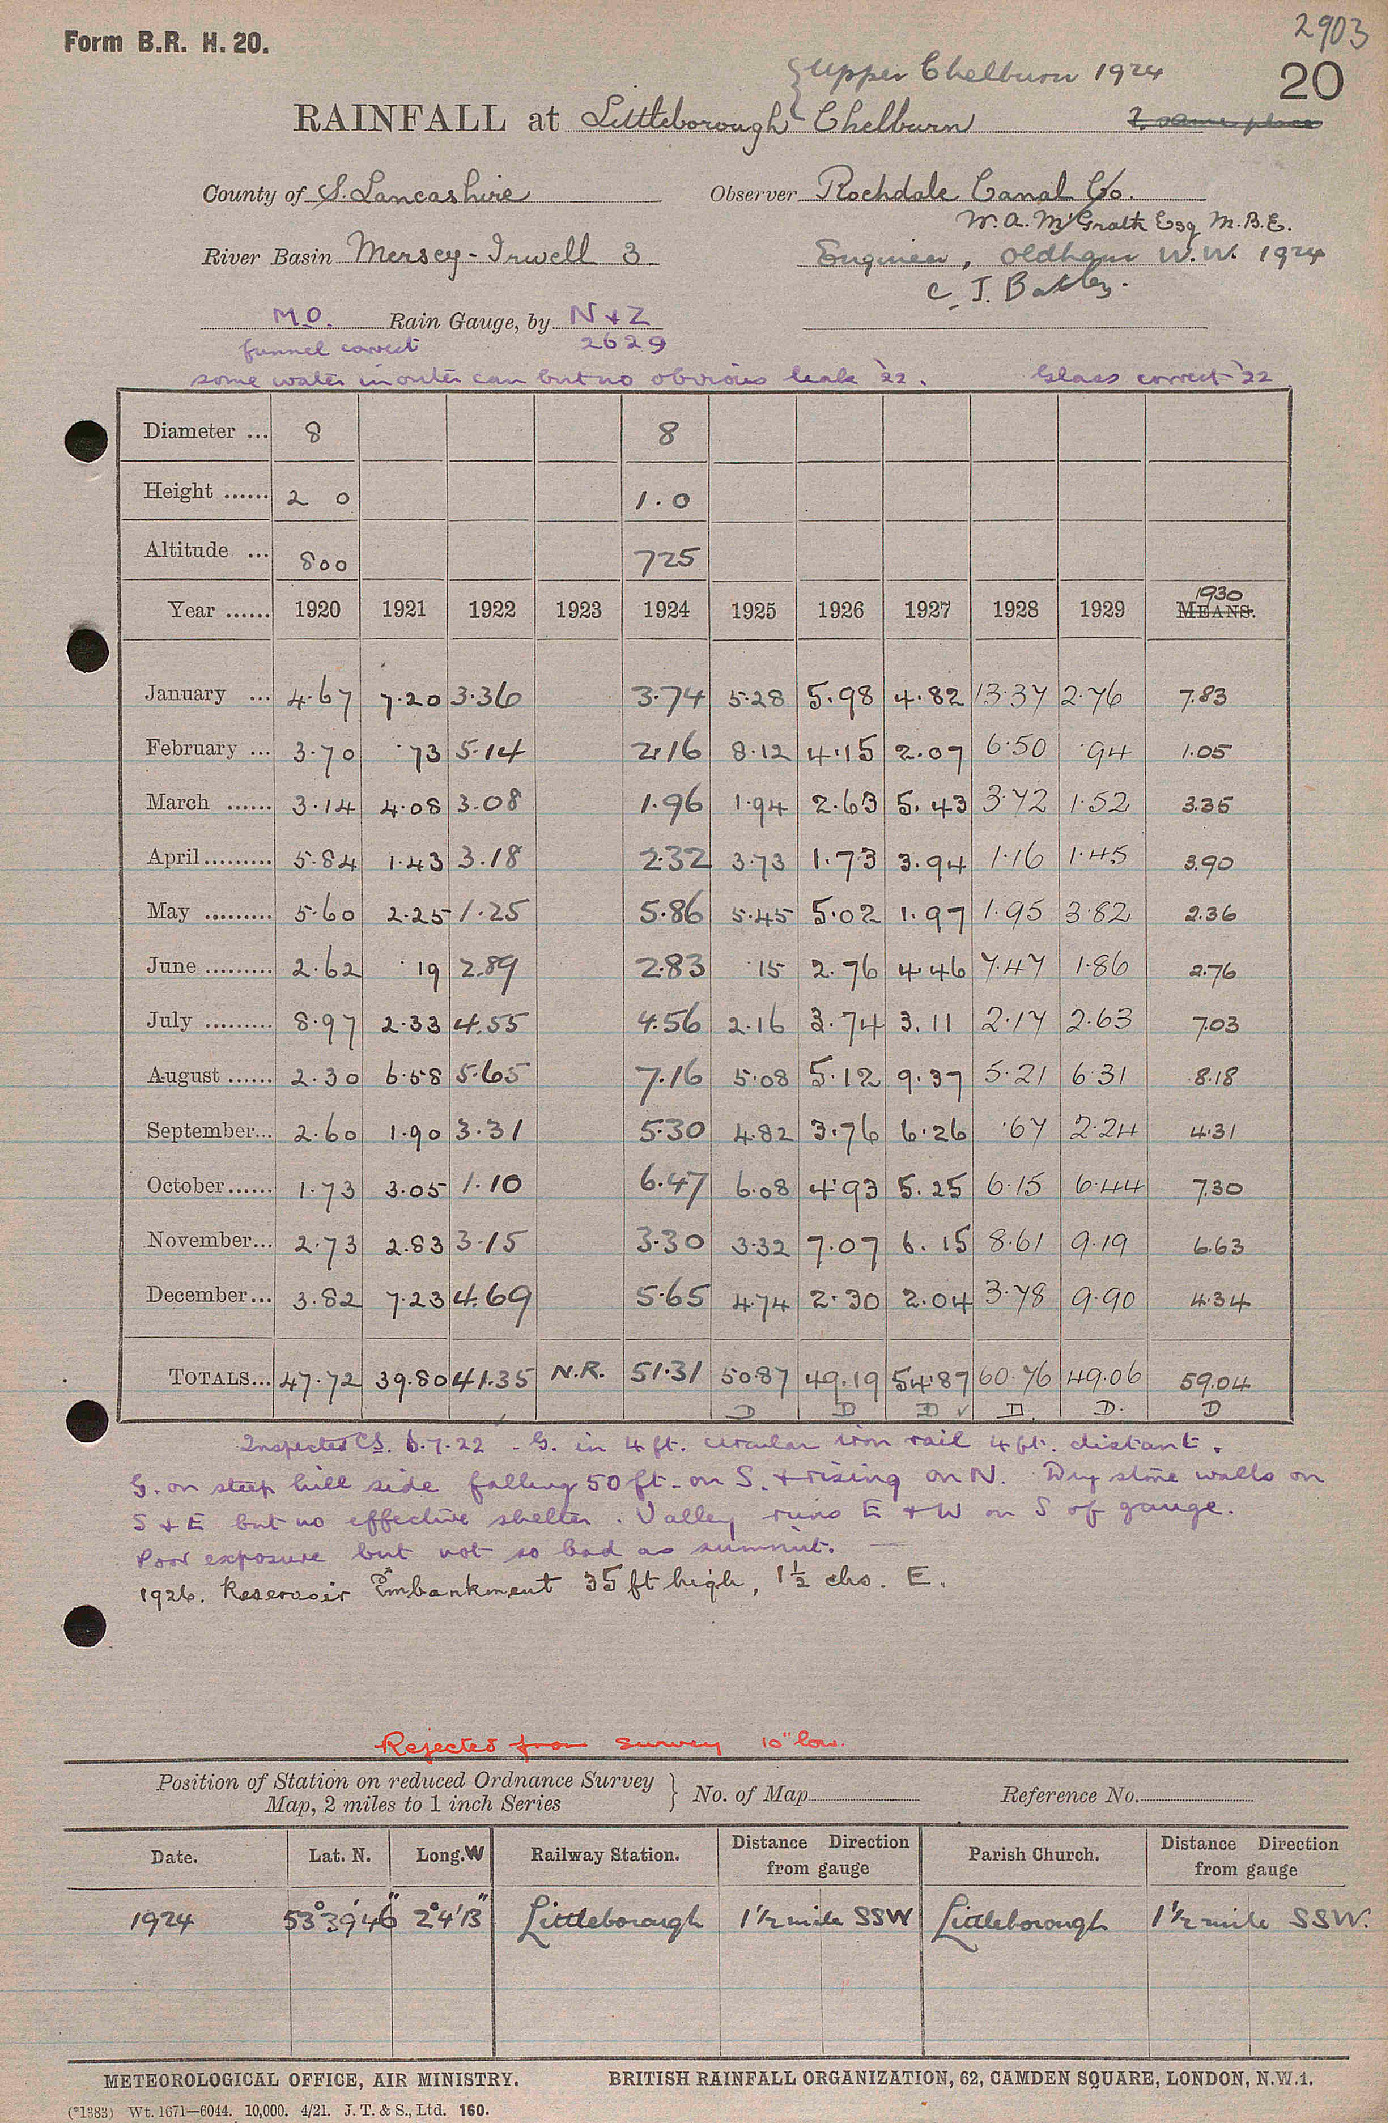 2903
Form B.R. H. 20.
Upper Chelburn 1924
20
RAINFALL at Littleborough { Chelburn ? same place
County of S. Lancashire Observer Rochdale Canal Co.
W. A. McGrath Esq M.B.E.
River Basin Mersey-Irwell 3 Engineer, Oldham W.W. 1924
C. J. Batley.
M.O. Rain Gauge, by N & Z
funnel correct 2629
some water in outer can but no obvious leak '22. Glass correct '22
Diameter ... 8 8
Height ...... 2 0 1.0
Altitude ... 800 725
Year ...... 1920 1921 1922 1923 1924 1925 1926 1927 1928 1929 1930 MEANS.
January ... 4.67 7.20 3.36 3.74 5.28 5.98 4.82 13.37 2.76 7.83
February ... 3.70 .73 5.14 2.16 8.12 4.15 2.07 6.50 .94 1.05
March ...... 3.14 4.08 3.08 1.96 1.94 2.63 5.43 3.72 1.52 3.35
April ......... 5.84 1.43 3.18 2.32 3.73 1.73 3.94 1.16 1.45 3.90
May ......... 5.60 2.25 1.25 5.86 5.45 5.02 1.97 1.95 3.82 2.36
June ......... 2.62 .19 2.89 2.83 .15 2.76 4.46 7.47 1.86 2.76
July ......... 8.97 2.33 4.55 4.56 2.16 3.74 3.11 2.17 2.63 7.03
August ...... 2.30 6.58 5.65 7.16 5.08 5.12 9.37 5.21 6.31 8.18
September... 2.60 1.90 3.31 5.30 4.82 3.76 6.26 .67 2.24 4.31
October...... 1.73 3.05 1.10 6.47 6.08 4.93 5.25 6.15 6.44 7.30
November... 2.73 2.83 3.15 3.30 3.32 7.07 6.15 8.61 9.19 6.63
December... 3.82 7.23 4.69 5.65 4.74 2.30 2.04 3.78 9.90 4.34
TOTALS... 47.72 39.80 41.35 N.R. 51.31 50.87 49.19 54.87 60.76 49.06 59.04
D D D ✓ D. D. D
Inspected CS. 6.7.22 - G. in 4 ft. circular iron rail 4 ft. distant.
G. on steep hill side falling 50 ft. on S. & rising on N. Dry stone walls on
S & E but no effective shelter. Valley runs E & W on S of gauge.
Poor exposure but not so bad as summit. —
1926. Reservoir Embankment 35 ft high, 1½ chs. E.
Rejected from survey 10" low.
Position of Station on reduced Ordnance Survey
Map, 2 miles to 1 inch Series } No. of Map Reference No.
Date. Lat. N. Long. W Railway Station. Distance Direction from gauge Parish Church. Distance Direction from gauge
1924 53°39'46" 2°4'13" Littleborough 1½ mile SSW Littleborough 1½ mile SSW.
METEOROLOGICAL OFFICE, AIR MINISTRY. BRITISH RAINFALL ORGANIZATION, 62, CAMDEN SQUARE, LONDON, N.W.1.
(*1383) Wt. 1671—6044. 10,000. 4/21. J. T. & S., Ltd. 160.